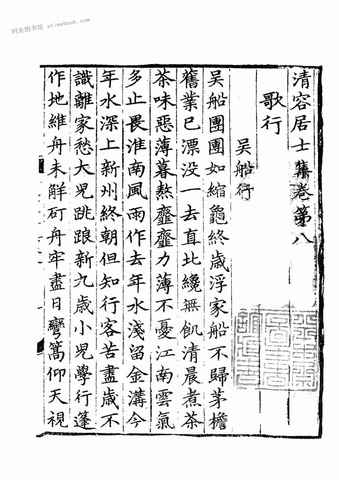 清容居士集卷第八
歌行
吳船行
吳船團團如縮龜終歲浮家船不歸茅檐
舊業已漂没一去直北纔無飢清晨煮茶
茶味惡薄暮熬虀虀力薄不憂江南雲氣
多止畏淮南風雨作去年水淺留金溝今
年水深上新州終朝但知行客苦盡歲不
識離家愁大兒跳踉新九歲小兒學行蓬
作地維舟未解矴舟牢盡日彎篙仰天視